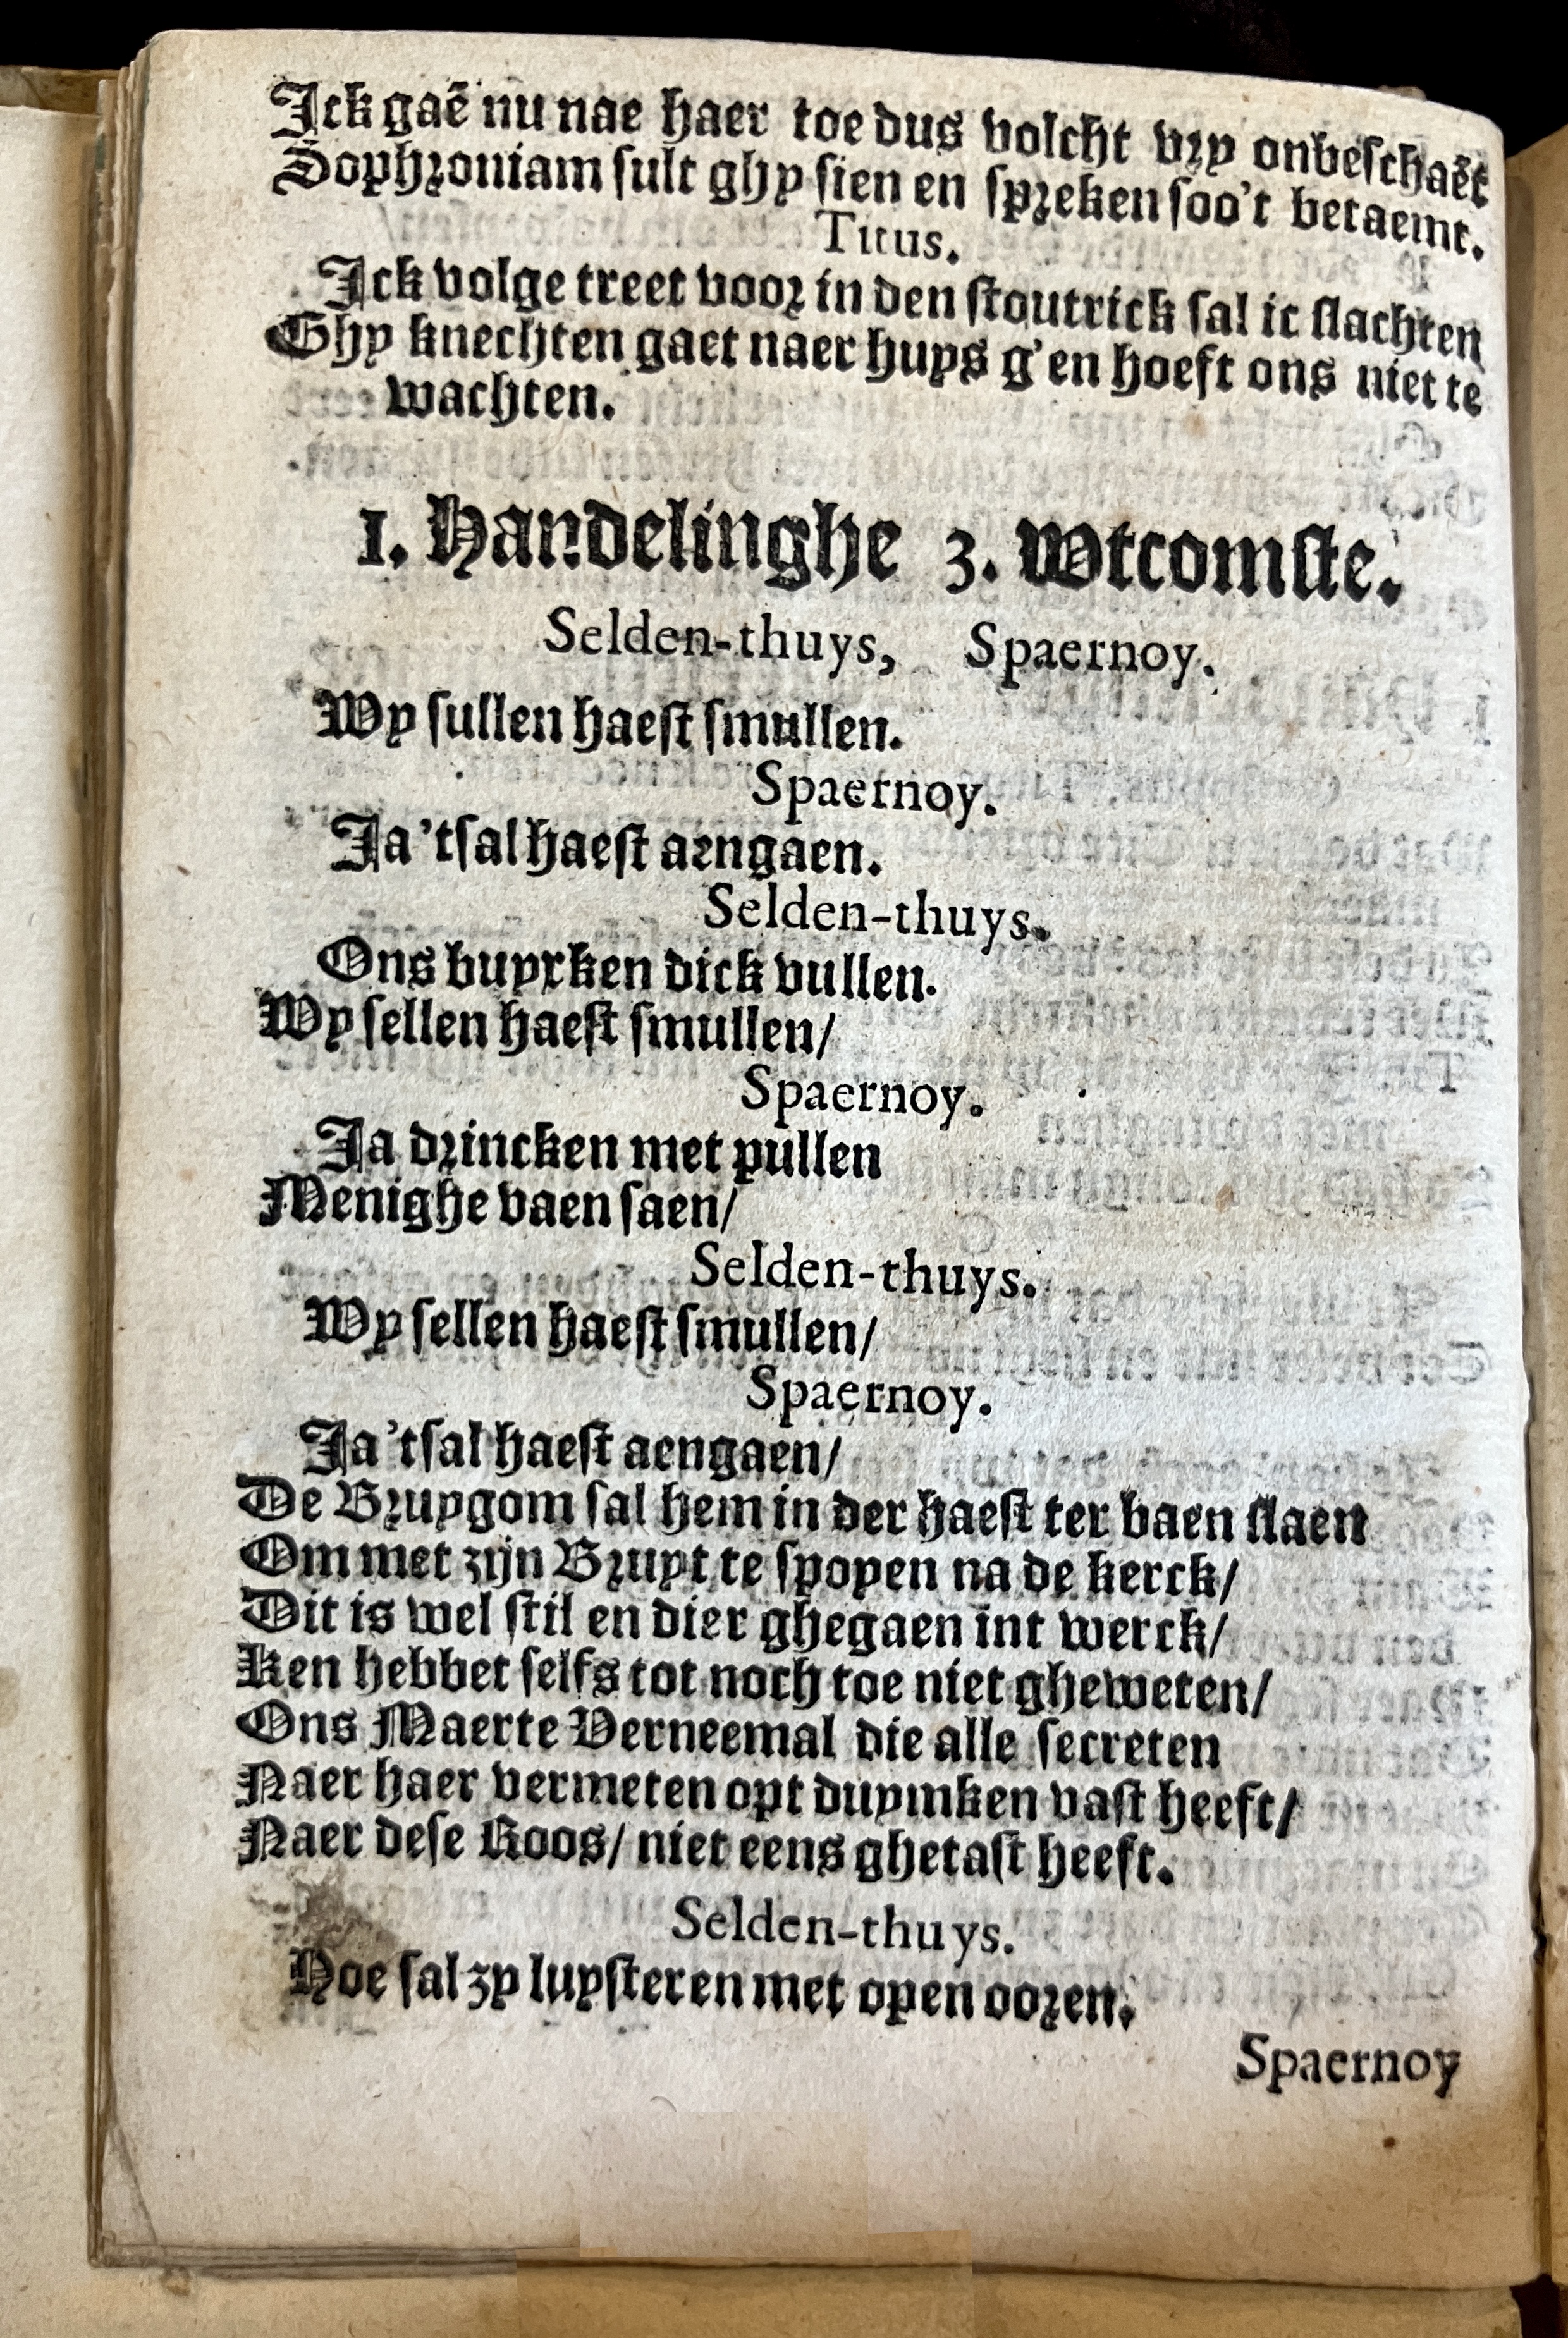 Ick gaē nu nae haer toe dus volcht vry onbeschaēt
Sophroniam sult ghy sien en spreken soo't betaemt.
Titus.
Ick volge treet voor in den stoutrick sal ic slachten
Ghy knechten gaet naer huys g'en hoeft ons niet te
wachten.
1. Handelinghe 3. Wtcomste.
Selden-thuys, Spaernoy.
Wy sullen haest smullen.
Spaernoy.
Ja 'tsal haest aengaen.
Selden-thuys.
Ons buyxken dick vullen.
Wy sellen haest smullen/
Spaernoy.
Ja drincken met pullen
Menighe vaen saen/
Selden-thuys.
Wy sellen haest smullen/
Spaernoy.
Ja 'tsal haest aengaen/
De Bruygom sal hem in der haest ter baen slaen
Om met zijn Bruyt te spoyen na de kerck/
Dit is wel stil en dier ghegaen int werck/
Ken hebbet selfs tot noch toe niet gheweten/
Ons Maerte Verneemal die alle secreten
Naer haer vermeten opt duymken vast heeft/
Naer dese Roos/ niet eens ghetast heeft.
Selden-thuys.
Hoe sal zy luysteren met open ooren.
Spaernoy